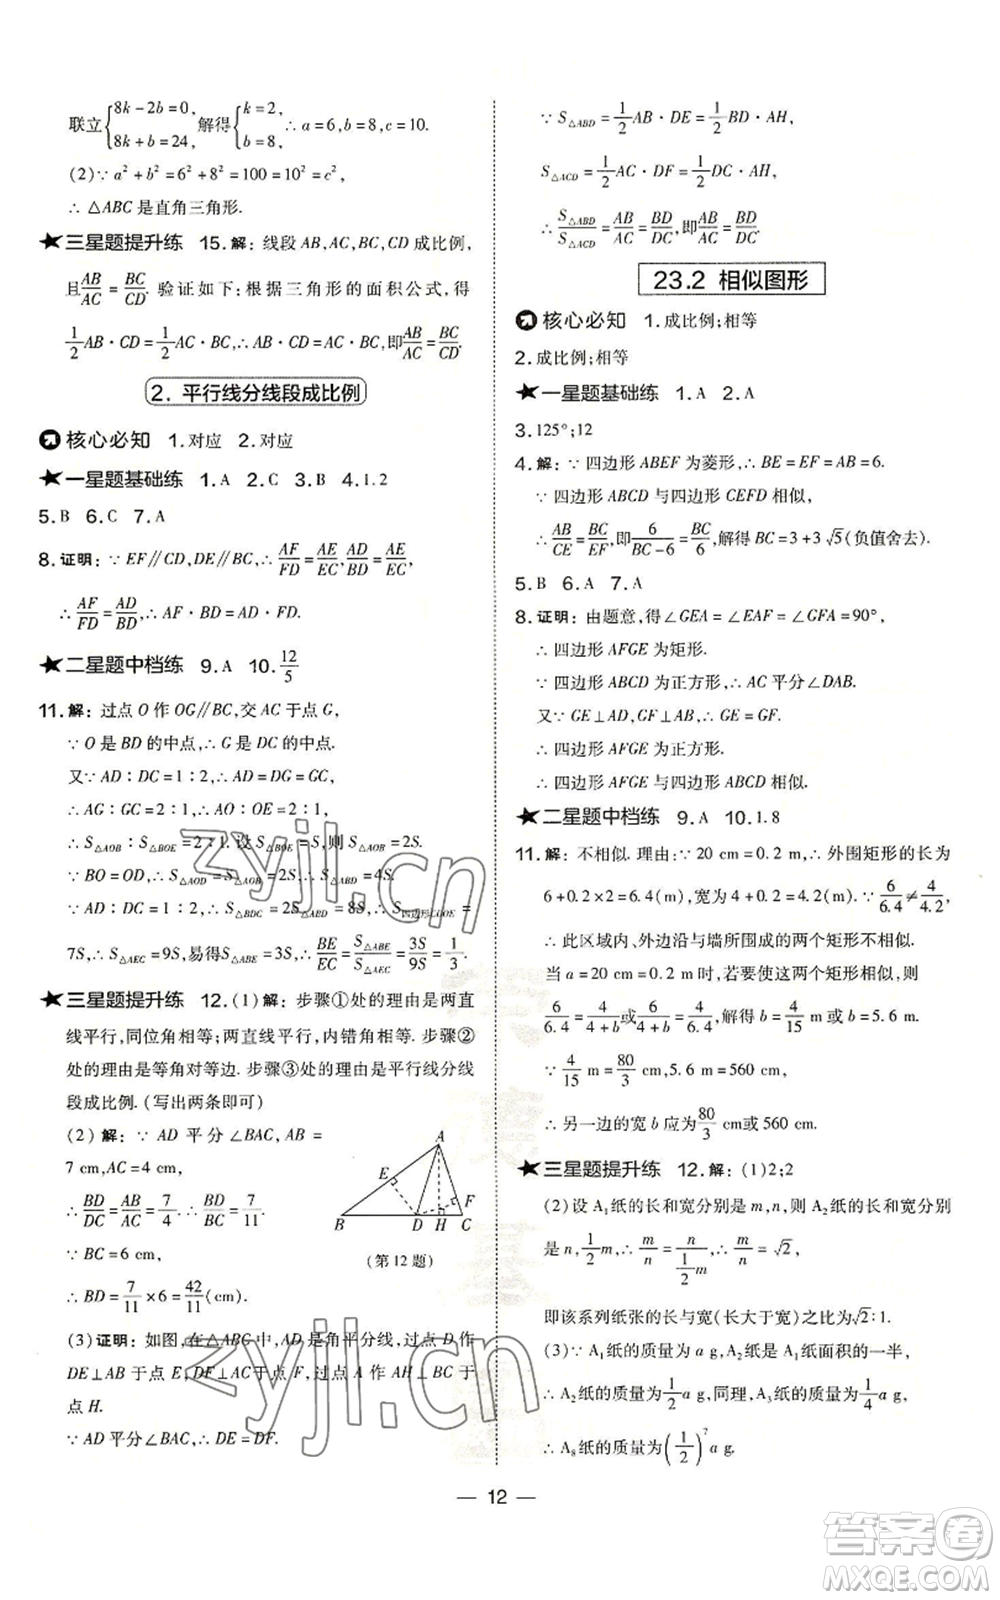 联立{8k-2b=0, 8k+b=24, 解得{k=2, b=8, ∴a=6,b=8,c=10.
(2)∵a²+b²=6²+8²=100=10²=c²,
∴△ABC是直角三角形.
★三星题提升练 15.解:线段AB,AC,BC,CD成比例,
且AB/AC=BC/CD. 验证如下:根据三角形的面积公式,得
1/2 AB·CD=1/2 AC·BC,∴AB·CD=AC·BC,即AB/AC=BC/CD.
2. 平行线分线段成比例
核心必知 1.对应 2.对应
★一星题基础练 1.A 2.C 3.B 4.1.2
5.B 6.C 7.A
8.证明:∵EF∥CD,DE∥BC,∴AF/FD=AE/EC,AD/BD=AE/EC,
∴AF/FD=AD/BD,∴AF·BD=AD·FD.
★二星题中档练 9.A 10.12/5
11.解:过点O作OG∥BC,交AC于点G,
∵O是BD的中点,∴G是DC的中点.
又∵AD∶DC=1∶2,∴AD=DG=GC,
∴AG∶GC=2∶1,∴AO∶OE=2∶1,
∴S△AOB∶S△BOE=2∶1. 设S△BOE=S,则S△AOB=2S.
∵BO=OD,∴S△AOD=S△AOB=2S,∴S△ABD=4S.
∵AD∶DC=1∶2,∴S△BDC=2S△ABD=8S,∴S四边形CDOE=
7S,∴S△AEC=9S,易得S△ABE=3S,∴BE/EC=S△ABE/S△AEC=3S/9S=1/3.
★三星题提升练 12.(1)解:步骤①处的理由是两直
线平行,同位角相等;两直线平行,内错角相等. 步骤②
处的理由是等角对等边. 步骤③处的理由是平行线分线
段成比例.(写出两条即可)
(2)解:∵AD平分∠BAC,AB=
7 cm,AC=4 cm,
∴BD/DC=AB/AC=7/4.∴BD/BC=7/11.
∵BC=6 cm,
∴BD=7/11×6=42/11(cm).
A
E
F
B
D
H
C
(第12题)
(3)证明:如图,在△ABC中,AD是角平分线,过点D作
DE⊥AB于点E,DF⊥AC于点F,过点A作AH⊥BC于
点H.
∵AD平分∠BAC,∴DE=DF.
∵S△ABD=1/2 AB·DE=1/2 BD·AH,
S△ACD=1/2 AC·DF=1/2 DC·AH,
∴S△ABD/S△ACD=AB/AC=BD/DC,即AB/AC=BD/DC.
23.2 相似图形
核心必知 1.成比例;相等
2.成比例;相等
★一星题基础练 1.A 2.A
3.125°;12
4.解:∵四边形ABEF为菱形,∴BE=EF=AB=6.
∵四边形ABCD与四边形CEFD相似,
∴AB/CE=BC/EF,即6/(BC-6)=BC/6,解得BC=3+3√5(负值舍去).
5.B 6.A 7.A
8.证明:由题意,得∠GEA=∠EAF=∠GFA=90°,
∴四边形AFGE为矩形.
∵四边形ABCD为正方形,∴AC平分∠DAB.
又∵GE⊥AD,GF⊥AB,∴GE=GF.
∴四边形AFGE为正方形.
∴四边形AFGE与四边形ABCD相似.
★二星题中档练 9.A 10.1.8
11.解:不相似. 理由:∵20 cm=0.2 m,∴外围矩形的长为
6+0.2×2=6.4(m),宽为4+0.2=4.2(m). ∵6/6.4≠4/4.2,
∴此区域内、外边沿与墙所围成的两个矩形不相似.
当a=20 cm=0.2 m时,若要使这两个矩形相似,则
6/6.4=4/(4+b)或6/(4+b)=4/6.4,解得b=4/15 m或b=5.6 m.
∵4/15 m=80/3 cm,5.6 m=560 cm,
∴另一边的宽b应为80/3 cm或560 cm.
★三星题提升练 12.解:(1)2;2
(2)设A₁纸的长和宽分别是m,n,则A₂纸的长和宽分别
是n,1/2 m,∴m/n=n/(1/2 m),∴m/n=√2,
即该系列纸张的长与宽(长大于宽)之比为√2∶1.
(3)∵A₁纸的质量为a g,A₂纸是A₁纸面积的一半,
∴A₂纸的质量为1/2 a g,同理,A₃纸的质量为1/4 a g.
∴A₈纸的质量为(1/2)⁷a g.
12
zyjl.cn
zyjl.cn
答案圈
MXQE.COM